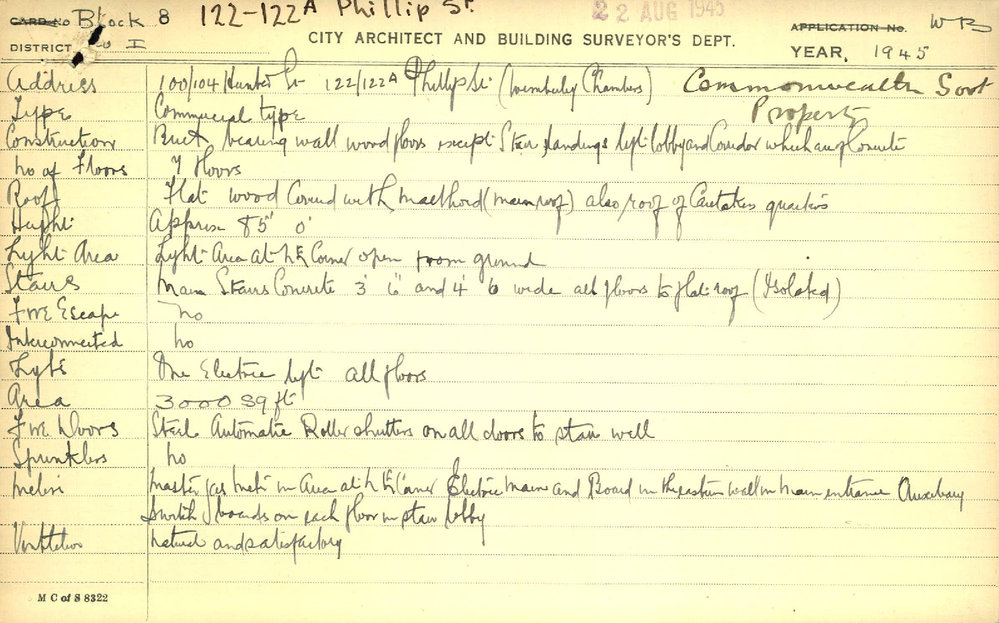 CARD No Block 8 122-122A Phillip St. 22 AUG 1945 APPLICATION No. WB
DISTRICT I CITY ARCHITECT AND BUILDING SURVEYOR'S DEPT. YEAR, 1945
Address 100/104 Hunter St 122/122A Phillip St (Wemberley Chambers) Commonwealth Govt
Property
Type Commercial type
Construction Brick bearing wall wood floors except Stair landings lift lobby and Corridor which are Concrete
No of Floors 7 floors
Roof Flat wood Covered with malthoid (main roof) also roof of Caretakers quarters
Height Approx 85' 0"
Light Area Light Area at NE Corner open from ground
Stairs Main Stairs Concrete 3' 6" and 4' 6 wide all floors to flat roof (Isolated)
Fire Escape no
Interconnected no
Lifts One Electric lift all floors
Area 3000 sq ft
Fire Doors Steel Automatic Roller shutters on all doors to stair well
Sprinklers no
Meters Master gas meter in Area at NE Corner Electric main and Board in the eastern wall in main entrance Auxiliary
switch boards on each floor in stair lobby
Ventilation natural and satisfactory
M C of S 8322